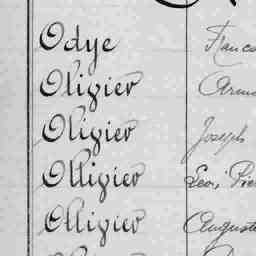 Odye Franc
Olivier Arm
Olivier Joseph
Ollivier Leon, Pie
Ollivier Auguste